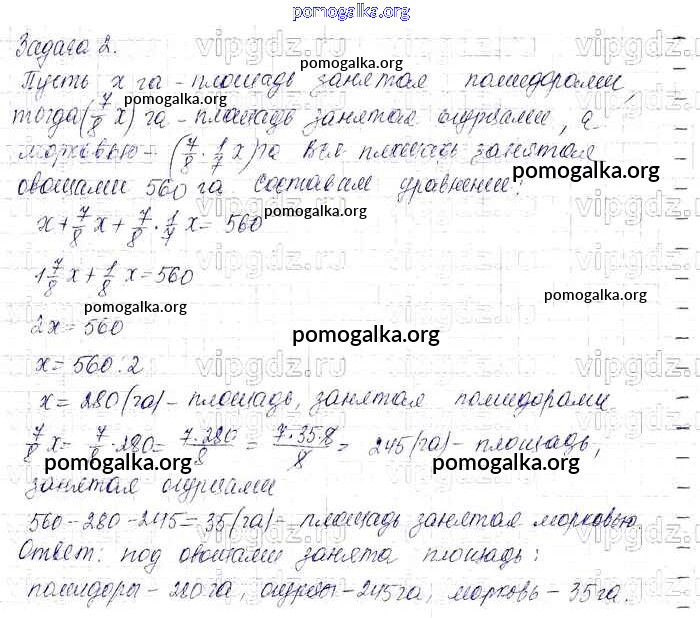 pomogalka.org
Задача 2.
Пусть x га - площадь занятая помидорами,
тогда (7/8 x) га - площадь занятая огурцами, а
морковью - (7/8 · 1/7 x) га Вся площадь занятая
pomogalka.org
овощами 560 га. Составим уравнение:
pomogalka.org
x + 7/8 x + 7/8 · 1/7 x = 560
1 7/8 x + 1/8 x = 560
pomogalka.org
pomogalka.org
2x = 560
pomogalka.org
x = 560 : 2
x = 280 (га) - площадь, занятая помидорами
7/8 x = 7/8 · 280 = 7·280/8 = 7·35·8/8 = 245 (га) - площадь,
pomogalka.org pomogalka.org
занятая огурцами
560 - 280 - 245 = 35 (га) - площадь занятая морковью.
Ответ: под овощами занята площадь:
помидоры - 280 га, огурцы - 245 га, морковь - 35 га.
vipgdz.ru vipgdz.ru vipgdz.ru